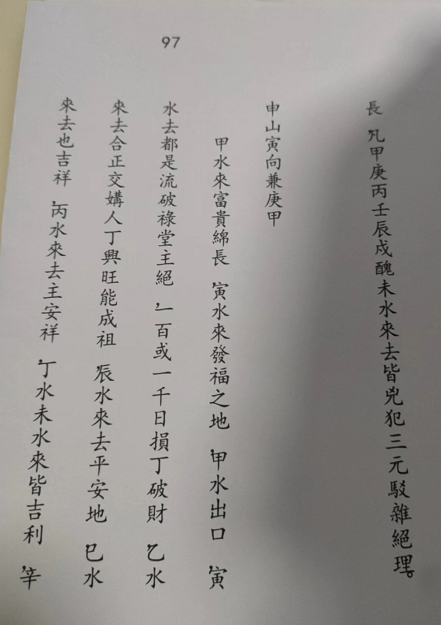 97
長 凡甲庚丙壬辰戍醜未水來去皆兇犯三元駁雜絕理。
申山寅向兼庚甲
甲水來富貴綿長 寅水來發福之地 甲水出口 寅
水去都是流破祿堂主絕 一百或一千日損丁破財 乙水
來去合正交媾人丁興旺能成祖 辰水來去平安地 巳水
來去也吉祥 丙水來去主安祥 丁水未水來皆吉利 辛